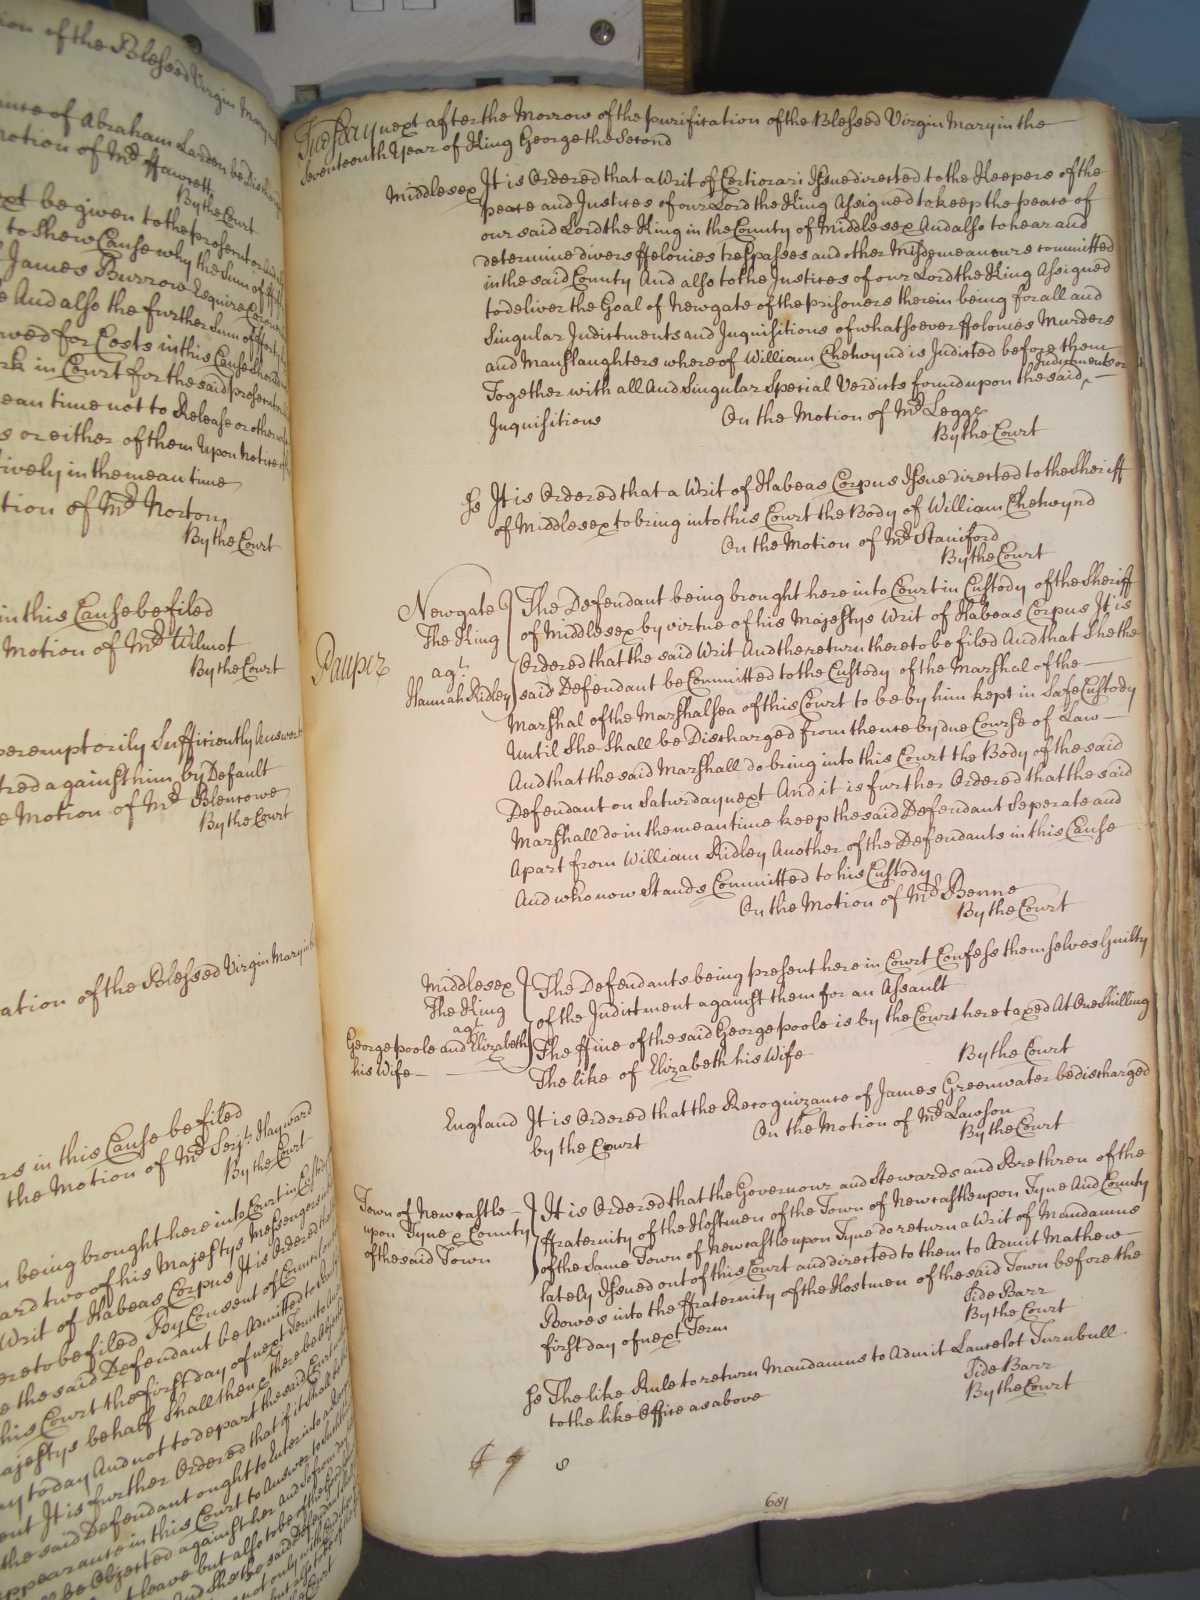 ion of the Blessed Virgin Mary
ance of Abraham Larden be Discharged
motion of Mr. ffawcett
By the Court
ext be given to the prosecutor
to Shew Cause why the Sum of
James Burrow Esquire
And also the further Sum of fforty
wed for Costs in this Cause Should
rk in Court for the said prosecutor
ean time not to Release or other
s or either of them Upon Notice
tively in the mean time
tion of Mr. Norton
By the Court
in this Cause be filed
Motion of Mr. Wilmot
By the Court
peremptorily Sufficiently Answer
tred against him by Default
e Motion of Mr. Blencowe
By the Court
ation of the Blessed Virgin Mary in the
rs in this Cause be filed
the Motion of Mr. Serjt. Hayward
By the Court
n being brought here into Court in Custody
ard two of his Majestys Messengers
Writ of Habeas Corpus It is Ordered that
ereto be filed By Consent of Council
e the said Defendant be Admitted to
his Court the first day of next Term to
ajestys behalf Shall then & there be Objected
ay to day And not to depart the said Court
ent It is further Ordered that if it shall
the said Defendant ought to Enter into
ppearance in this Court to Answer to
ll be Objected against her and so from day
t leave but also to be of the Good
And She the said Defendant
not only
the Court
Tuesday next after the Morrow of the purification of the Blessed Virgin Mary in the
Seventeenth Year of King George the Second
Middlesex It is Ordered that a Writ of Certiorari Issue directed to the Keepers of the
peace and Justices of our Lord the King Assigned to keep the peace of
our said Lord the King in the County of Middlesex And also to hear and
determine divers ffelonies trespasses and other Misdemeanours committed
in the said County And also to the Justices of our Lord the King Assigned
to deliver the Goal of Newgate of the prisoners therein being for all and
Singular Indictments and Inquisitions of whatsoever ffelonies Murders
and Manslaughters whereof William Chetwynd is Indicted before them
Together with all And Singular Special Verdicts found upon the said ^ Indictments or
Inquisitions On the Motion of Mr. Legge
By the Court
Ss It is Ordered that a Writ of Habeas Corpus Issue directed to the Sheriff
of Middlesex to bring into this Court the Body of William Chetwynd
On the Motion of Mr. Staniford
By the Court
Newgate The Defendant being brought here into Court in Custody of the Sheriff
The King of Middlesex by virtue of his Majestys Writ of Habeas Corpus It is
Pauper agt. Ordered that the said Writ And the return thereto be filed And that She the
Hannah Ridley said Defendant be Committed to the Custody of the Marshal of the
Marshal of the Marshalsea of this Court to be by him kept in Safe Custody
Until She Shall be Discharged from thence by due Course of Law
And that the said Marshall do bring into this Court the Body of the said
Defendant on Saturday next And it is further Ordered that the said
Marshall do in the mean time keep the said Defendant Seperate and
Apart from William Ridley Another of the Defendants in this Cause
And who now Stands Committed to his Custody
On the Motion of Mr. Benne
By the Court
Middlesex The Defendants being present here in Court Confess themselves Guilty
The King of the Indictment against them for an Assault
agt.
George poole and Elizabeth The ffine of the said George poole is by the Court here taxed At One Shilling
his Wife The like of Elizabeth his Wife
By the Court
England It is Ordered that the Recognizance of James Greenwater be discharged
by the Court On the Motion of Mr. Lawson
By the Court
Town of Newcastle It is Ordered that the Governour and Stewards and Brethren of the
upon Tyne & County ffraternity of the Hostmen of the Town of Newcastle upon Tyne And County
of the said Town of the Same Town of Newcastle upon Tyne do return a Writ of Mandamus
lately Issued out of this Court and directed to them to Admit Mathew
Bowes into the ffraternity of the Hostmen of the said Town before the
first day of next Term Side Barr
By the Court
Ss The like Rule to return Mandamus to Admit Lancelot Turnbull
to the like Office as above Side Barr
By the Court
681